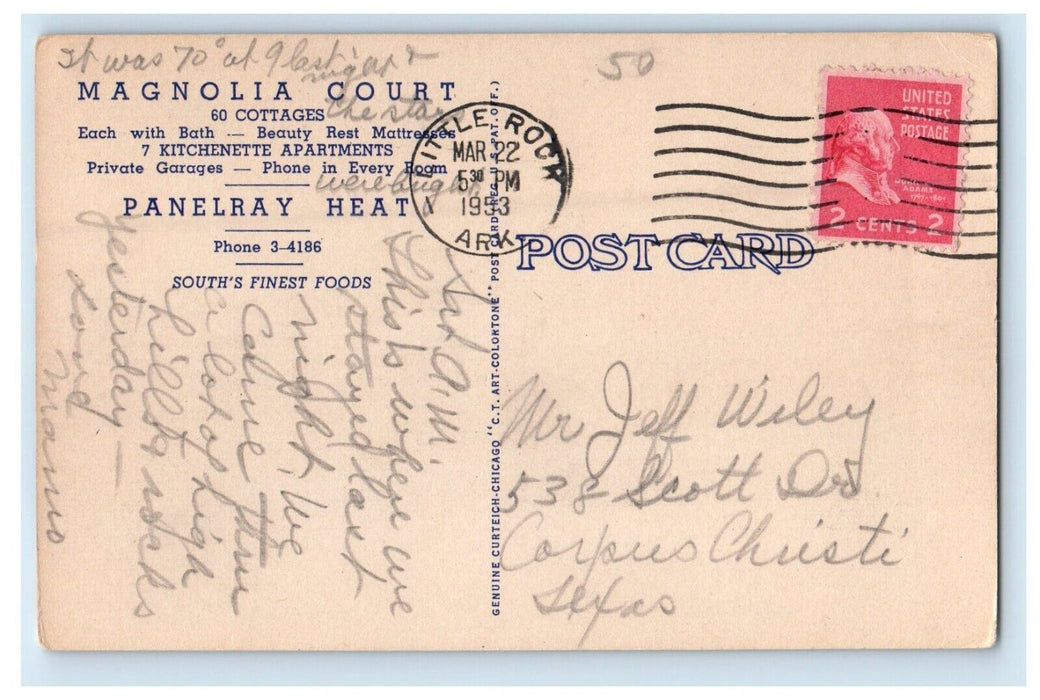 It was 70° at 9 last
night &
the stars
were bright
50
MAGNOLIA COURT
60 COTTAGES
Each with Bath — Beauty Rest Mattresses
7 KITCHENETTE APARTMENTS
Private Garages — Phone in Every Room
PANELRAY HEAT
Phone 3-4186
SOUTH'S FINEST FOODS
A.M.
This is where we
stayed last
night. We
came thru
a lot of high
hills & rocks
yesterday —
Love
Mamo
GENUINE CURTEICH-CHICAGO "C.T. ART-COLORTONE" POST CARD (REG. U.S. PAT. OFF.)
LITTLE ROCK
MAR 22
5 30 PM
1953
ARK.
UNITED
STATES
POSTAGE
JOHN
ADAMS
2 CENTS 2
POST CARD
Mr Jeff Wiley
538 Scott Dr.
Corpus Christi
Texas